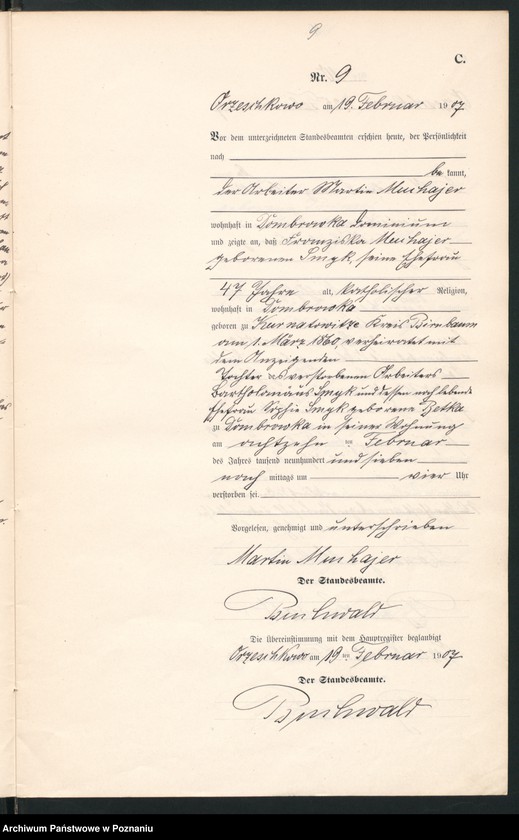 9
C.
Nr. 9
Orzeschkowo am 19. Februar 1907
Vor dem unterzeichneten Standesbeamten erschien heute, der Persönlichkeit
nach
be kannt,
der Arbeiter Martin Muchajer
wohnhaft in Dombrowka Dominium
und zeigte an, daß Franziska Muchajer
geborenen Smyk, seine Ehefrau
47 Jahre alt, katholischer Religion,
wohnhaft in Dombrowka
geboren zu Kurnatowitze Kreis Birnbaum
am 1. März 1860, verheiratet mit
dem Anzeigenden
Tochter des verstorbenen Arbeiters
Bartholomäus Smyk und dessen noch lebende
Ehefrau Sophie Smyk geborene
zu Dombrowka in seiner Wohnung
am achtzehn ten Februar
des Jahres tausend neunhundert und sieben
nach mittags um vier Uhr
verstorben sei.
Vorgelesen, genehmigt und unterschrieben
Martin Muchajer
Der Standesbeamte.
Buchwald
Die Übereinstimmung mit dem Hauptregister beglaubigt
Orzeschkowo am 19 ten Februar 1907
Der Standesbeamte.
Buchwald
Archiwum Państwowe w Poznaniu